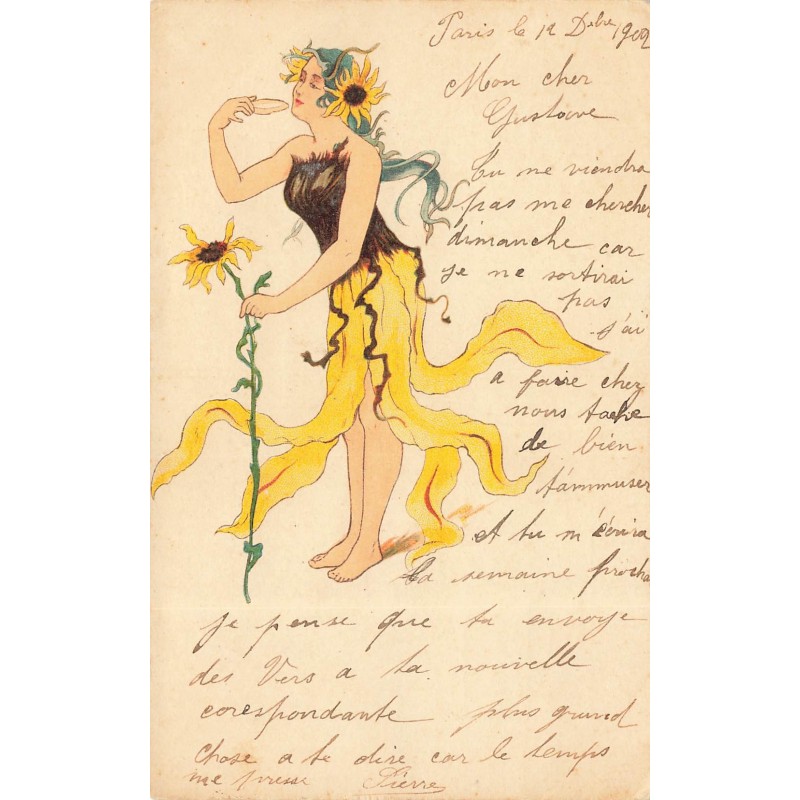 Paris le 12 Dbre 1902
Mon cher
Gustave
Tu ne viendra
pas me chercher
dimanche car
je ne sortirai
pas
j'ai
a faire chez
nous tache
de bien
t'ammuser
et tu m'écrira
la semaine procha
je pense que ta envoye
des Vers a ta nouvelle
corespondante plus grand
chose a te dire car le temps
me presse Pierre